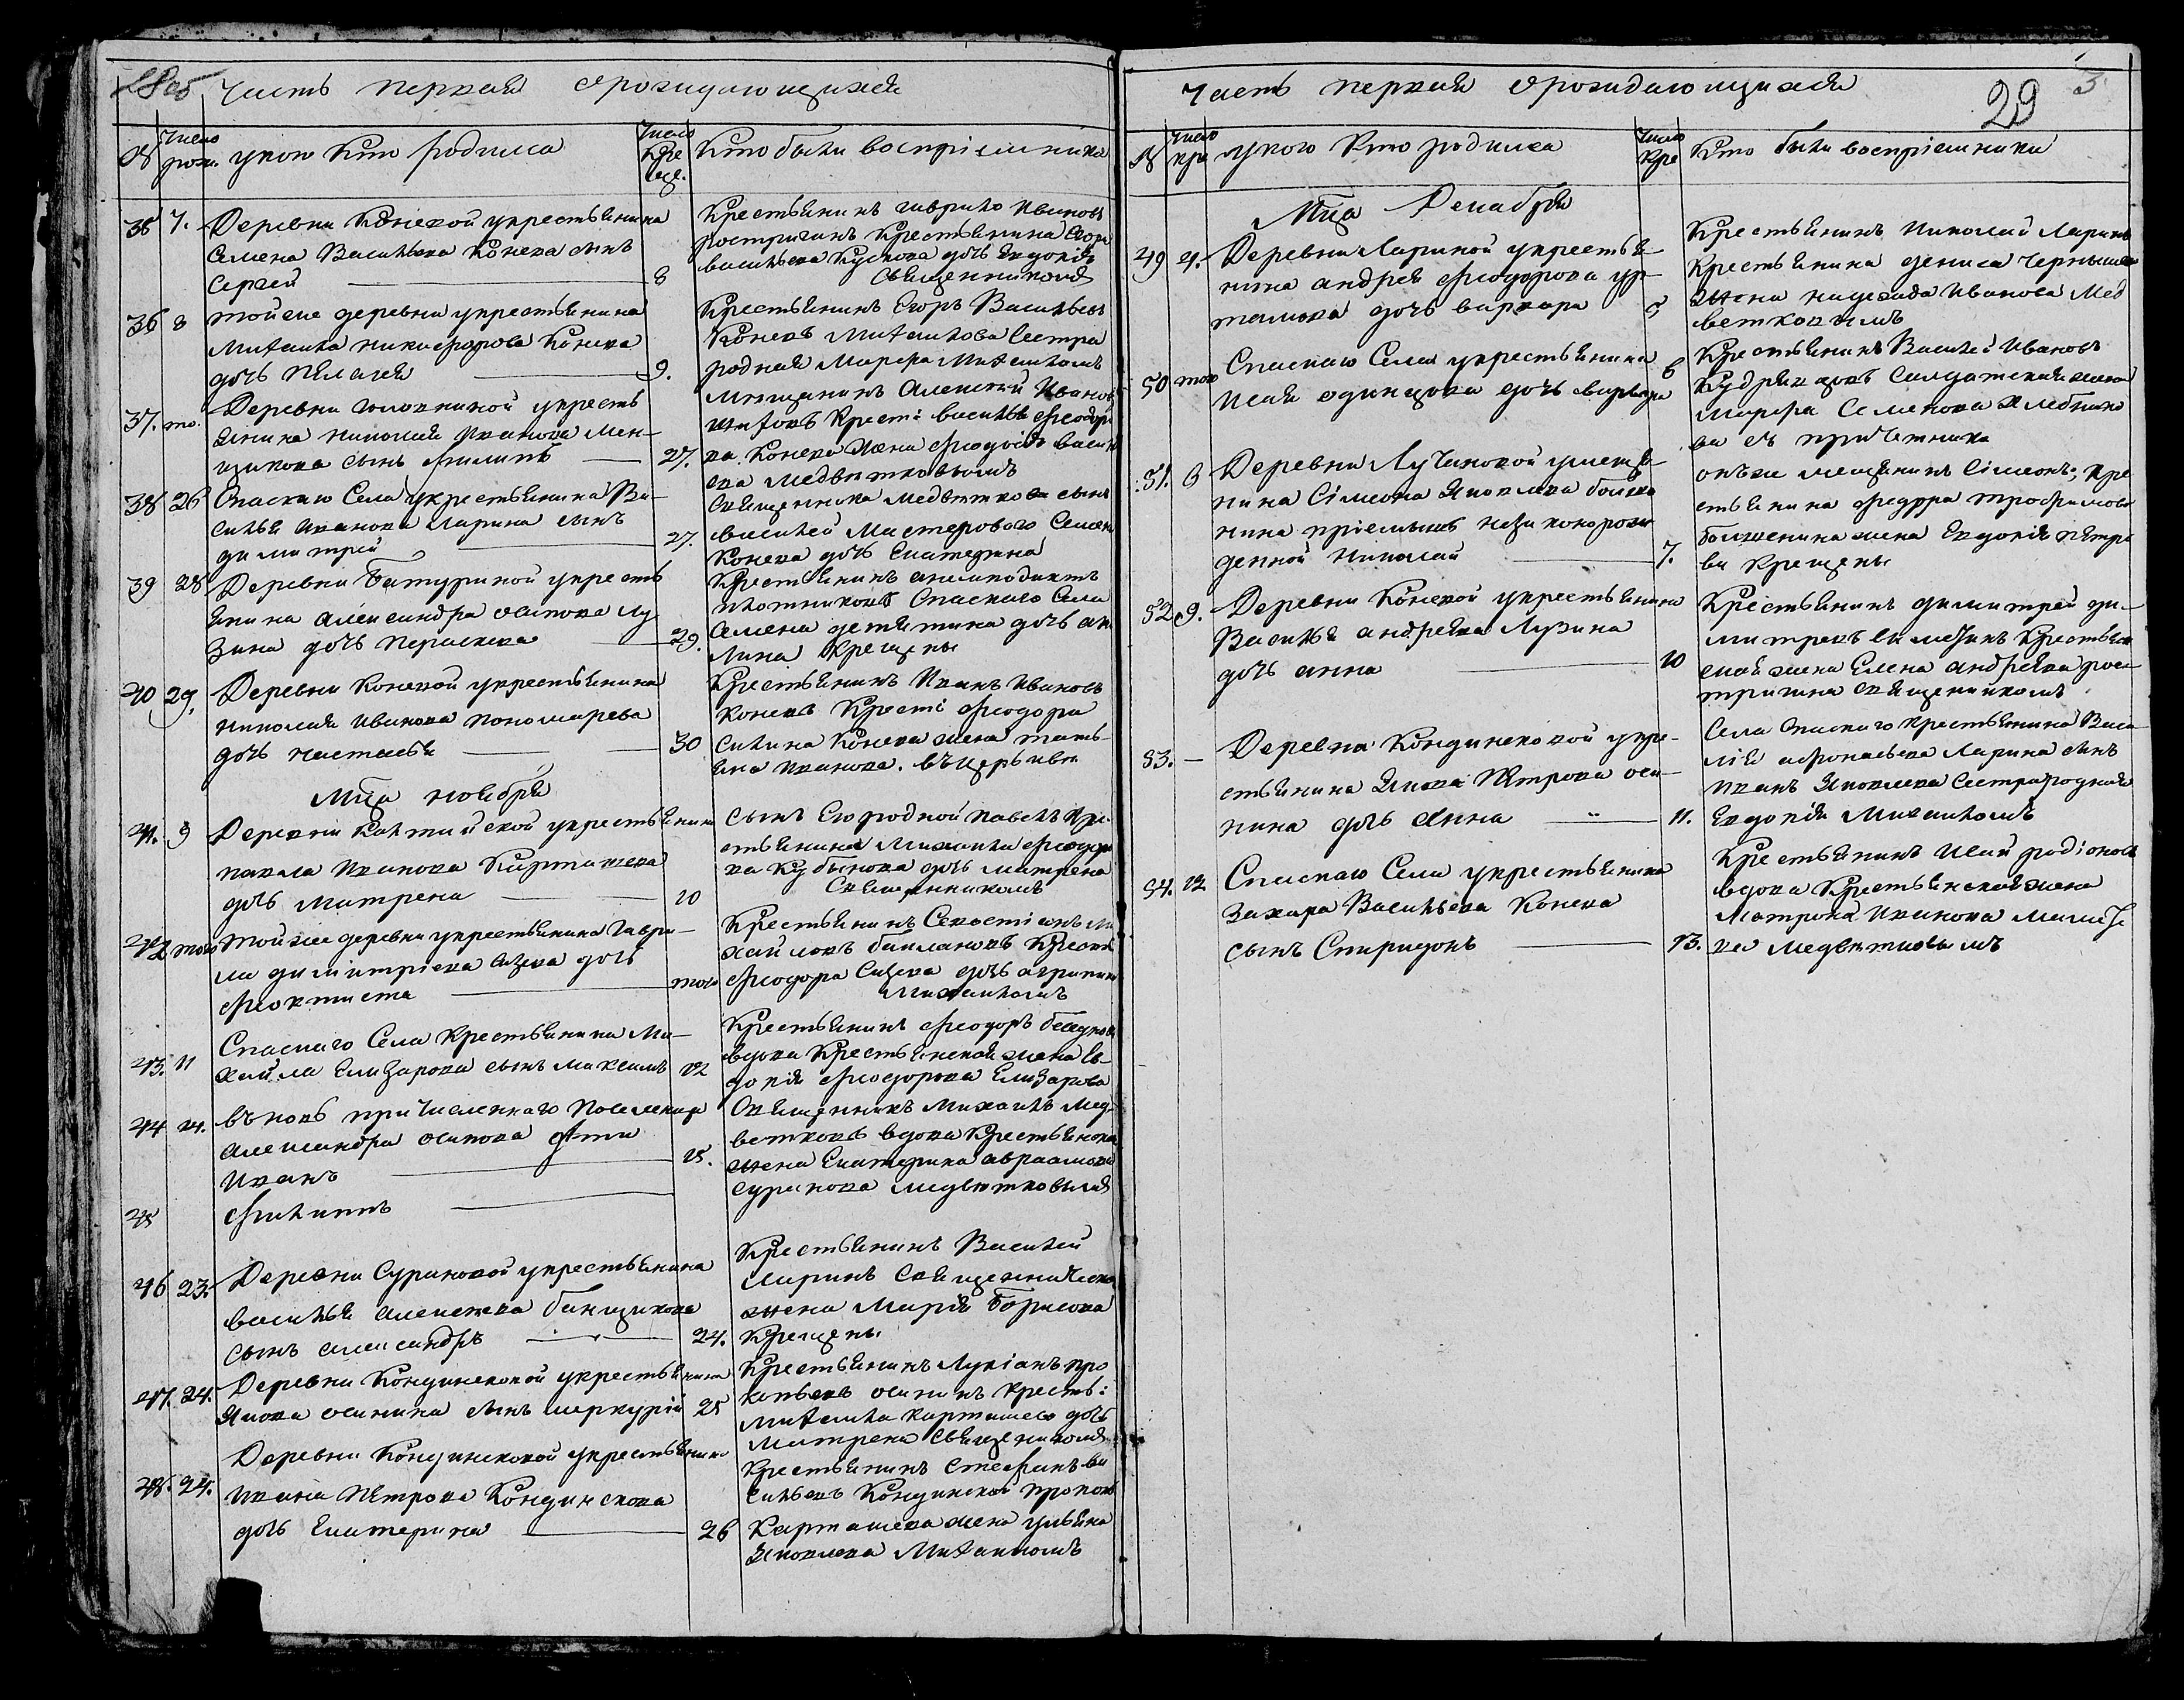 28об Часть первая ораждающихся
№ Число рож. укого Кто родился Число Кре ще. Кто были воспріемники
35 7. Деревни Коневой укрестьянина
Семена Васильева Конева сынъ
Сергей 8
Крестьянинъ гаврило Ивановъ
ростригинъ Крестьянина Егора
васильева Кускова дочь Евдокія
Священникомъ
36 8 тойже деревни укрестьянина
Михаила никифорова Конева
дочь Пелагея 9.
Крестьянинъ Егоръ Васильевъ
Коневъ Михаилова Сестра
родная Марфа Михаиломъ
37. то. Деревни головниной укресть
янина николая Иванова Мен-
щикова сынъ Филипъ 27.
Мещанинъ Алексей Ивановъ
Крест: василья феодоро
ва Конева жена феодосія василь
ева Медветковымъ
38 26 Спаскаго Села укрестьянина Ва-
силья Иванова Ларина сынъ
димитрей 27.
Священника Медветкова сынъ
василей Мастероваго Семена
Конева дочь Екатерина
39 28 Деревни Батуриной укресть
янина александра осипова Лу
зина дочь Пераскева 29.
Крестьянинъ анемподистъ
плотниковъ Спаскаго Села
Семена детятина дочь ак
лина Крещены
40 29. Деревни Коневой укрестьянина
николая Иванова пономарева
дочь настасья 30
Крестьянинъ Иванъ Ивановъ
Коневъ Крестi феодора
силина Конева жена тать-
яна Иванова. въ церькви
Мца ноября
41. 9 Деревни Калтайской укрестьянина
павла Иванова Карташева
дочь матрена 10
сынъ Его родной павелъ Кре
стьянина Михаила феодоро
ва Кубынова дочь матрена
Священникомъ
42 того тойже деревни укрестьянина Гаври-
ла димитріева Сизева дочь
феоктиста того
Крестьянинъ Севастіянъ Ми
хайловъ баклановъ Кресть
феодора Сизева дочь агрипина
Михаиломъ
43. 11 Спаскаго Села Крестьянина Ми-
хайла Елизарова сынъ максимъ 12
Крестьянинъ феодоръ
вдова Крестьянская жена Ев-
докія феодорова Елизарова
44 14. вновь причисленнаго поселенца
александра осипова дети
Иванъ 15.
Священникъ Михаилъ Мед-
ветковъ вдова Крестьянска
жена Екатерина авраамова
суранова медветковымъ
45 Филипъ
46 23. Деревни Сурановой укрестьянина
василья алексеева банщикова
сынъ александръ 24.
Крестьянинъ Василей
Ларинъ Священическа
жена Марія Борисова
Крещены
47. 24. Деревни Кондинсковой укрестьянина
Якова осинина сынъ меркурій 25
Крестьянинъ Лукіанъ про
копьевъ осининъ кресть:
михаила карташева дочь
матрена Священикомъ
48. 24. Деревни Кондинсковой укрестьянина
Ивана Петрова Кондинскова
дочь Екатерина 26
Крестьянинъ Стефанъ ва
сильевъ Кондинской прокопья
Карташева жена ульяна
Яковлева Михаиломъ
Часть первая ораждающихся 29
№ Число укого Кто родился Число Кре Кто были воспріемники
Мца Декабря
49 4. Деревни Лариной укрестья-
нина андрея феодорова ур-
тамова дочь варвара 5
Крестьянинъ Николай Ларинъ
Крестьянина дениса Чернышева
жена надежда Иванова Мед
ветковымъ
50 того Спаскаго Села укрестьянина
Исая одинцова дочь варвара 6
Крестьянинъ Василей Ивановъ
Кудрявцовъ Салдатская жена
марфа Семенова хлебнико
ва съ причетника
51. 6 Деревни Лучановой умеща-
нина Сімеона Яковлева больша
нина пріемышъ незаконорож
денной Николай 7.
онъже мещанинъ Сімеонъ, кре
стьянина федора трофимова
большенина жена Евдокія Петро
ва Крещены
52 9. Деревни Коневой укрестьянина
Василья андреева Лузина
дочь анна 10
Крестьянинъ димитрей ди-
митревъ Крестьян
ской жена Елена андреева рос-
тригина священикомъ
53. — Деревни Кондинсковой укре-
стьянина Якова Петрова оси-
нина дочь Анна 11.
Села Спаскаго крестьянина Васи
лья афонасьева Ларина сынъ
Иванъ Яковлева Сестра родная
Евдокія Михаиломъ
54. 12 Спаскаго Села укрестьянина
Захара Васильева Конева
сынъ Спиридонъ 13.
Крестьянинъ Исай родіоновъ
вдова Крестьянская жена
Матрона Иванова
ва медветковымъ